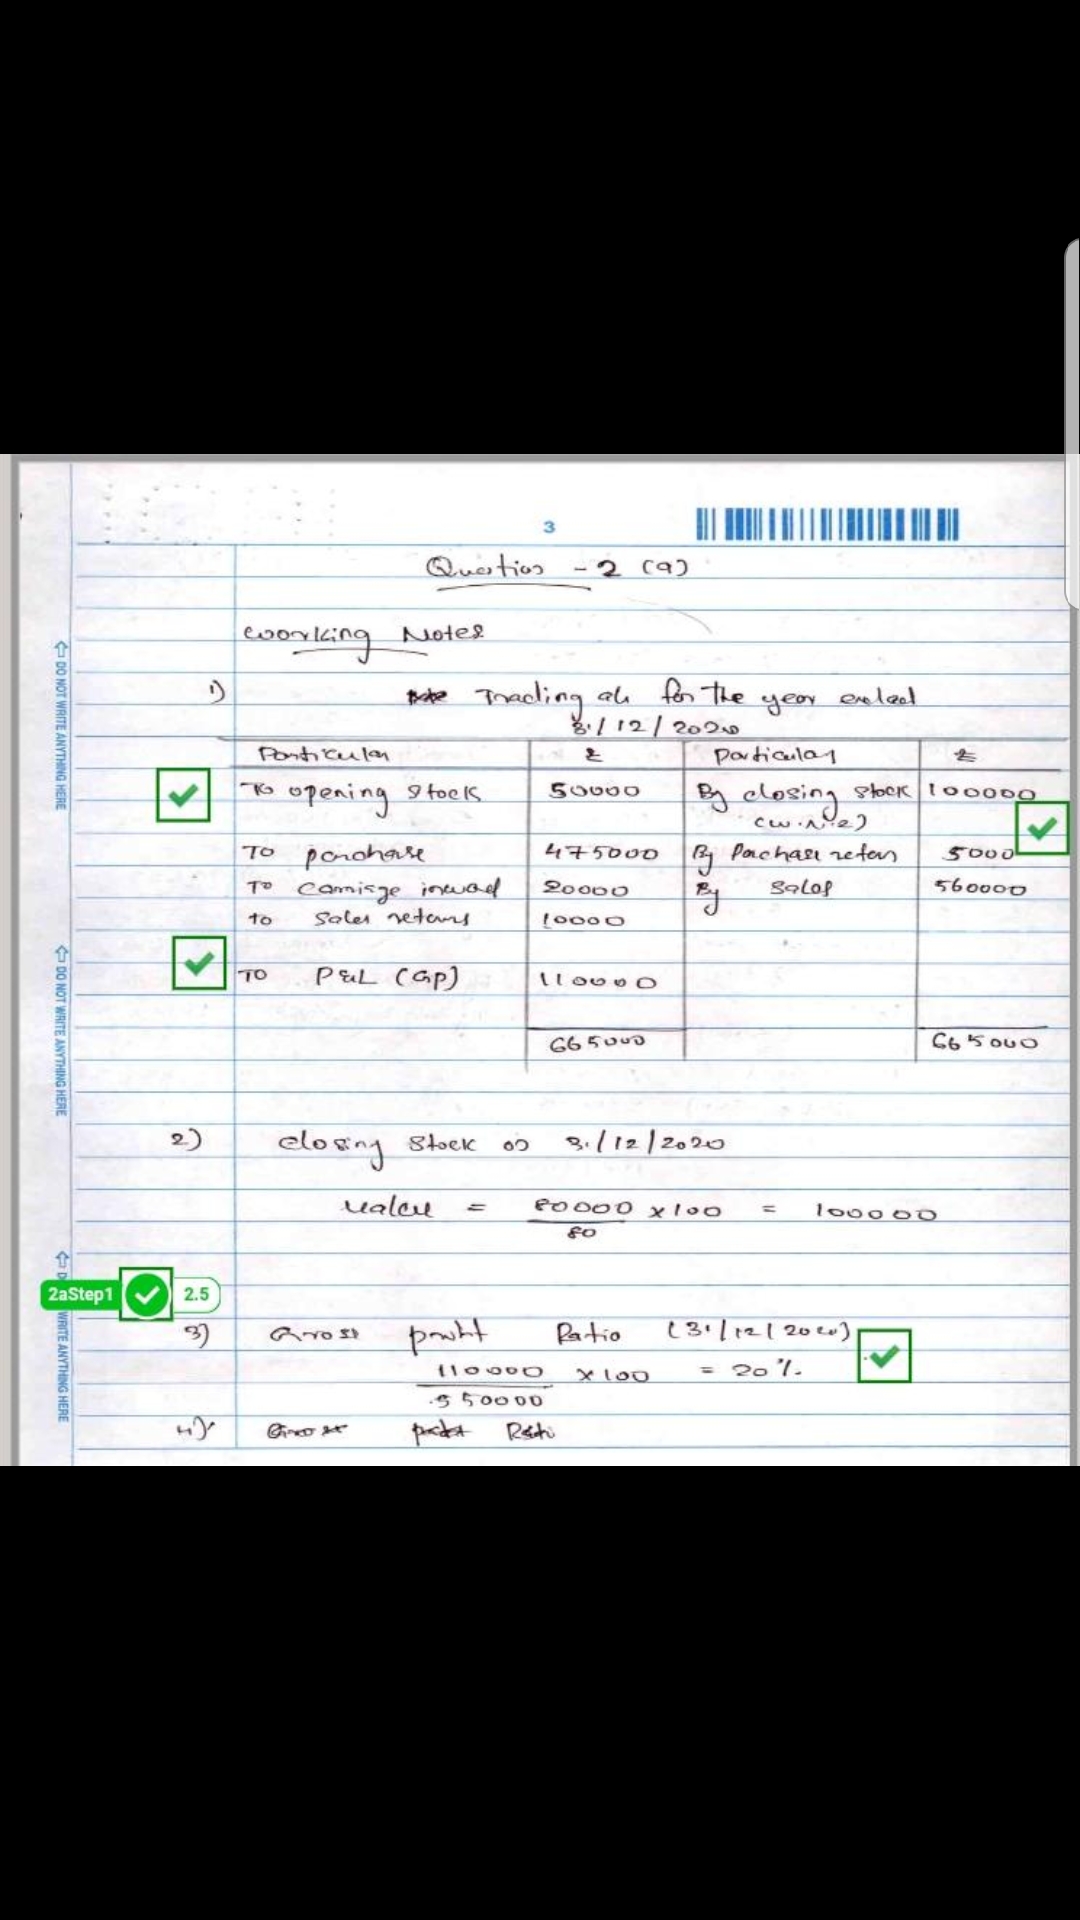 3
Question - 2 (a)
Working Notes
1) Trading a/c for the year ended
31/12/2020
Particular ₹ Particular ₹
To opening stock 50000 By closing stock 100000
(W.N.2)
To purchase 475000 By Purchase return 5000
To carriage inward 20000 By Sales 560000
to sales returns 10000
To P&L (GP) 110000
665000 665000
2) closing stock on 31/12/2020
value = 80000 x 100 = 100000
80
2aStep1 2.5
3) Gross profit Ratio (31/12/2020)
110000 x 100 = 20%
550000
4) Gross
DO NOT WRITE ANYTHING HERE
DO NOT WRITE ANYTHING HERE
WRITE ANYTHING HERE